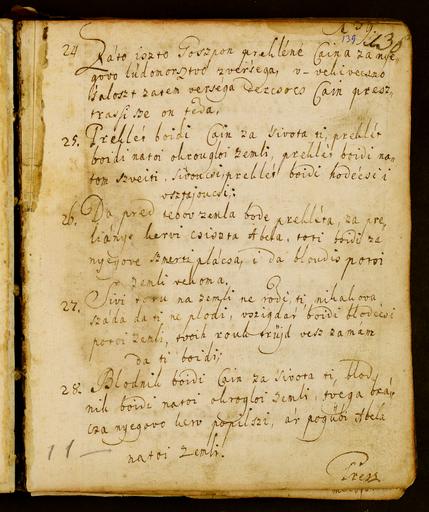 139
24. Zato iszto Goszpon prekléne Caina za nye
govo lüdomorstvo zversega, v- vekivecsno
saloszt zatem versega Dezcsocs Cain presz,
trassi sze on teda.
25. Preklét boidi Cain za sivota ti, preklét
boidi natoi okrougloi zemli, preklét boidi na
tom szveiti, sivoucsi, preklét boidi hodécsi i
osztajoucsi;
26. Da pred tebov zemla bode prekléta, za pre,
lianye kervi csiszta Abela, toti boidi za
nyegove szmerti plácsa, i da bloudis potoi
zemli vekoma.
27. Sivi na zemli ne rodi, ti, nikakova
száda da ti ne plodi, vszigdár boidi blodécsi
potoi zemli, tvoih rouk trüjd vesz zaman
da ti boidi;
28. Blodnik boidi Cain za sivota ti, blod,
nik boidi natoi okrogloi zemli, tvega
nyegovo kerv popilszi, ár pogübi Abela
natoi zemli.
11 –
Presz